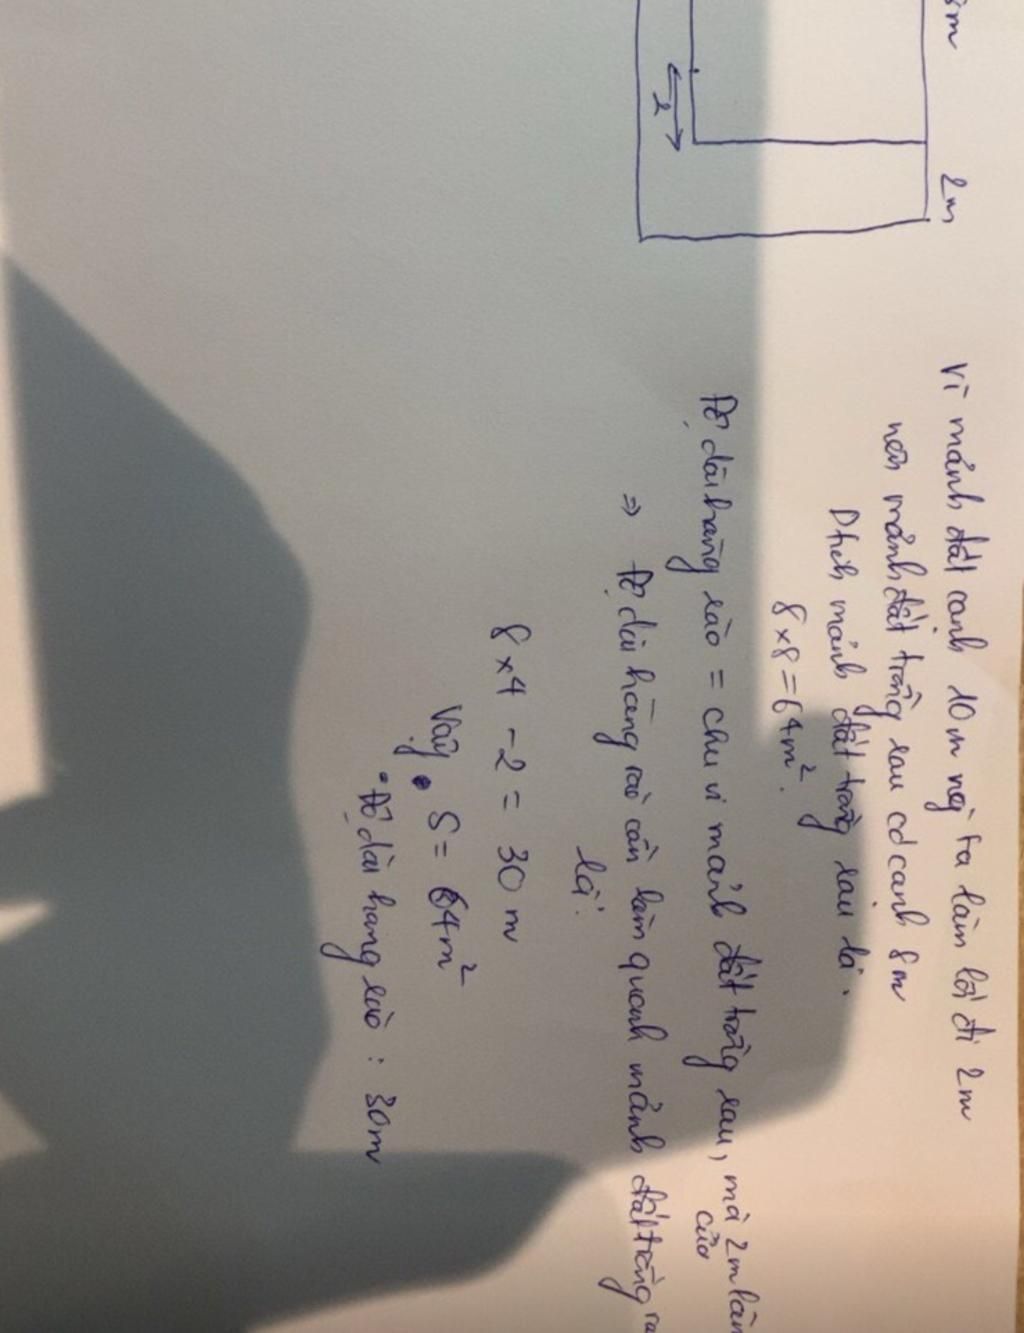 8m 2m
2
Vì mảnh đất cạnh 10m ng ta làm lối đi 2m
nên mảnh đất trồng rau có cạnh 8m
Dtích mảnh đất trồng rau là:
8 × 8 = 64m².
Độ dài hàng rào = chu vi mảnh đất trồng rau, mà 2m làm
cửa
⇒ Độ dài hàng rào cần làm quanh mảnh đất trồng ra
là:
8 × 4 - 2 = 30 m
Vậy • S = 64m²
• Độ dài hang rào : 30m